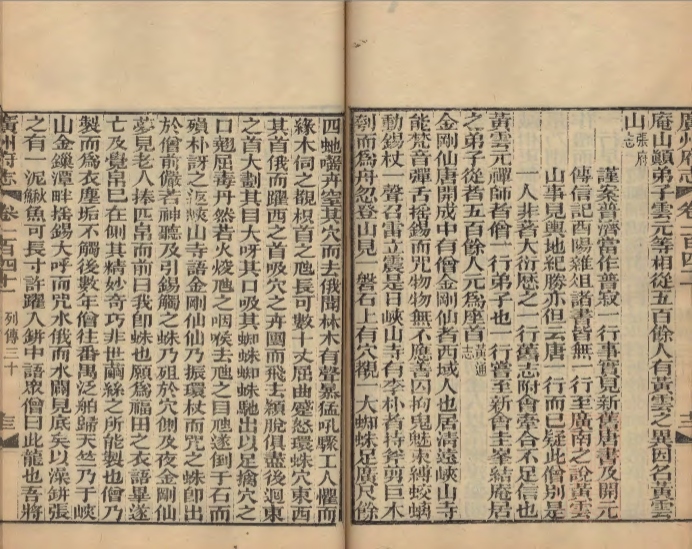 庵山巔弟子雲元等相從五百餘人有黃雲之異因名黃雲
山張府志
謹案普濟當作普寂一行事實見新舊唐書及開元
傳信記酉陽雜俎諸書皆無一行至廣南之說黃雲
山事見輿地紀勝亦但云唐一行而已疑此僧別是
一人非著大衍歷之一行舊志附會牽合不足信也
黃雲元禪師者僧一行弟子也一行嘗至新會圭峯結庵居
之弟子從者五百餘人元爲座首黃通志
金剛仙唐開成中有僧金剛仙者西域人也居清遠峽山寺
能梵音彈舌搖錫而咒物物無不應善囚拘鬼魅束縛蛟螭
動錫杖一聲召雷立震是日峽山寺有李朴者持斧剪巨木
刳而爲舟忽登山見一磐石上有穴覩一大蜘蛛足廣尺餘
四虵嚙卉窒其穴而去俄聞林木有聲暴猛吼驟工人懼而
緣木伺之觀枳首之虺長可數十丈屈曲蹙怒環蛛穴東西
其首俄而躍西之首吸穴之卉團而飛去頴脫俱盡後迴東
之首大劃其目大呀其口吸其蜘蛛蜘蛛馳出以足擒穴之
口翹屈毒丹然若火焌虺之咽喉去虺之目虺遂倒于石而
殞朴訝之返峽山寺語金剛仙仙乃振環杖而咒之蛛卽出
於僧前儼若神聽及引錫觸之蛛乃殂於穴側及夜金剛仙
夢見老人捧匹帛而前曰我卽蛛也願爲福田之衣語畢遂
亡及覺帛已在側其精妙奇巧非世繭絲之所能製也僧乃
製而爲衣塵垢不觸後數年僧往番禺泛舶歸天竺乃于峽
山金鏁潭畔搖錫大呼而咒水俄而水闢見底矣以澡缾張
之有一泥鰍魚可長寸許躍入缾中語衆僧曰此龍也吾將
廣州府志 卷一百四十一 列傳三十